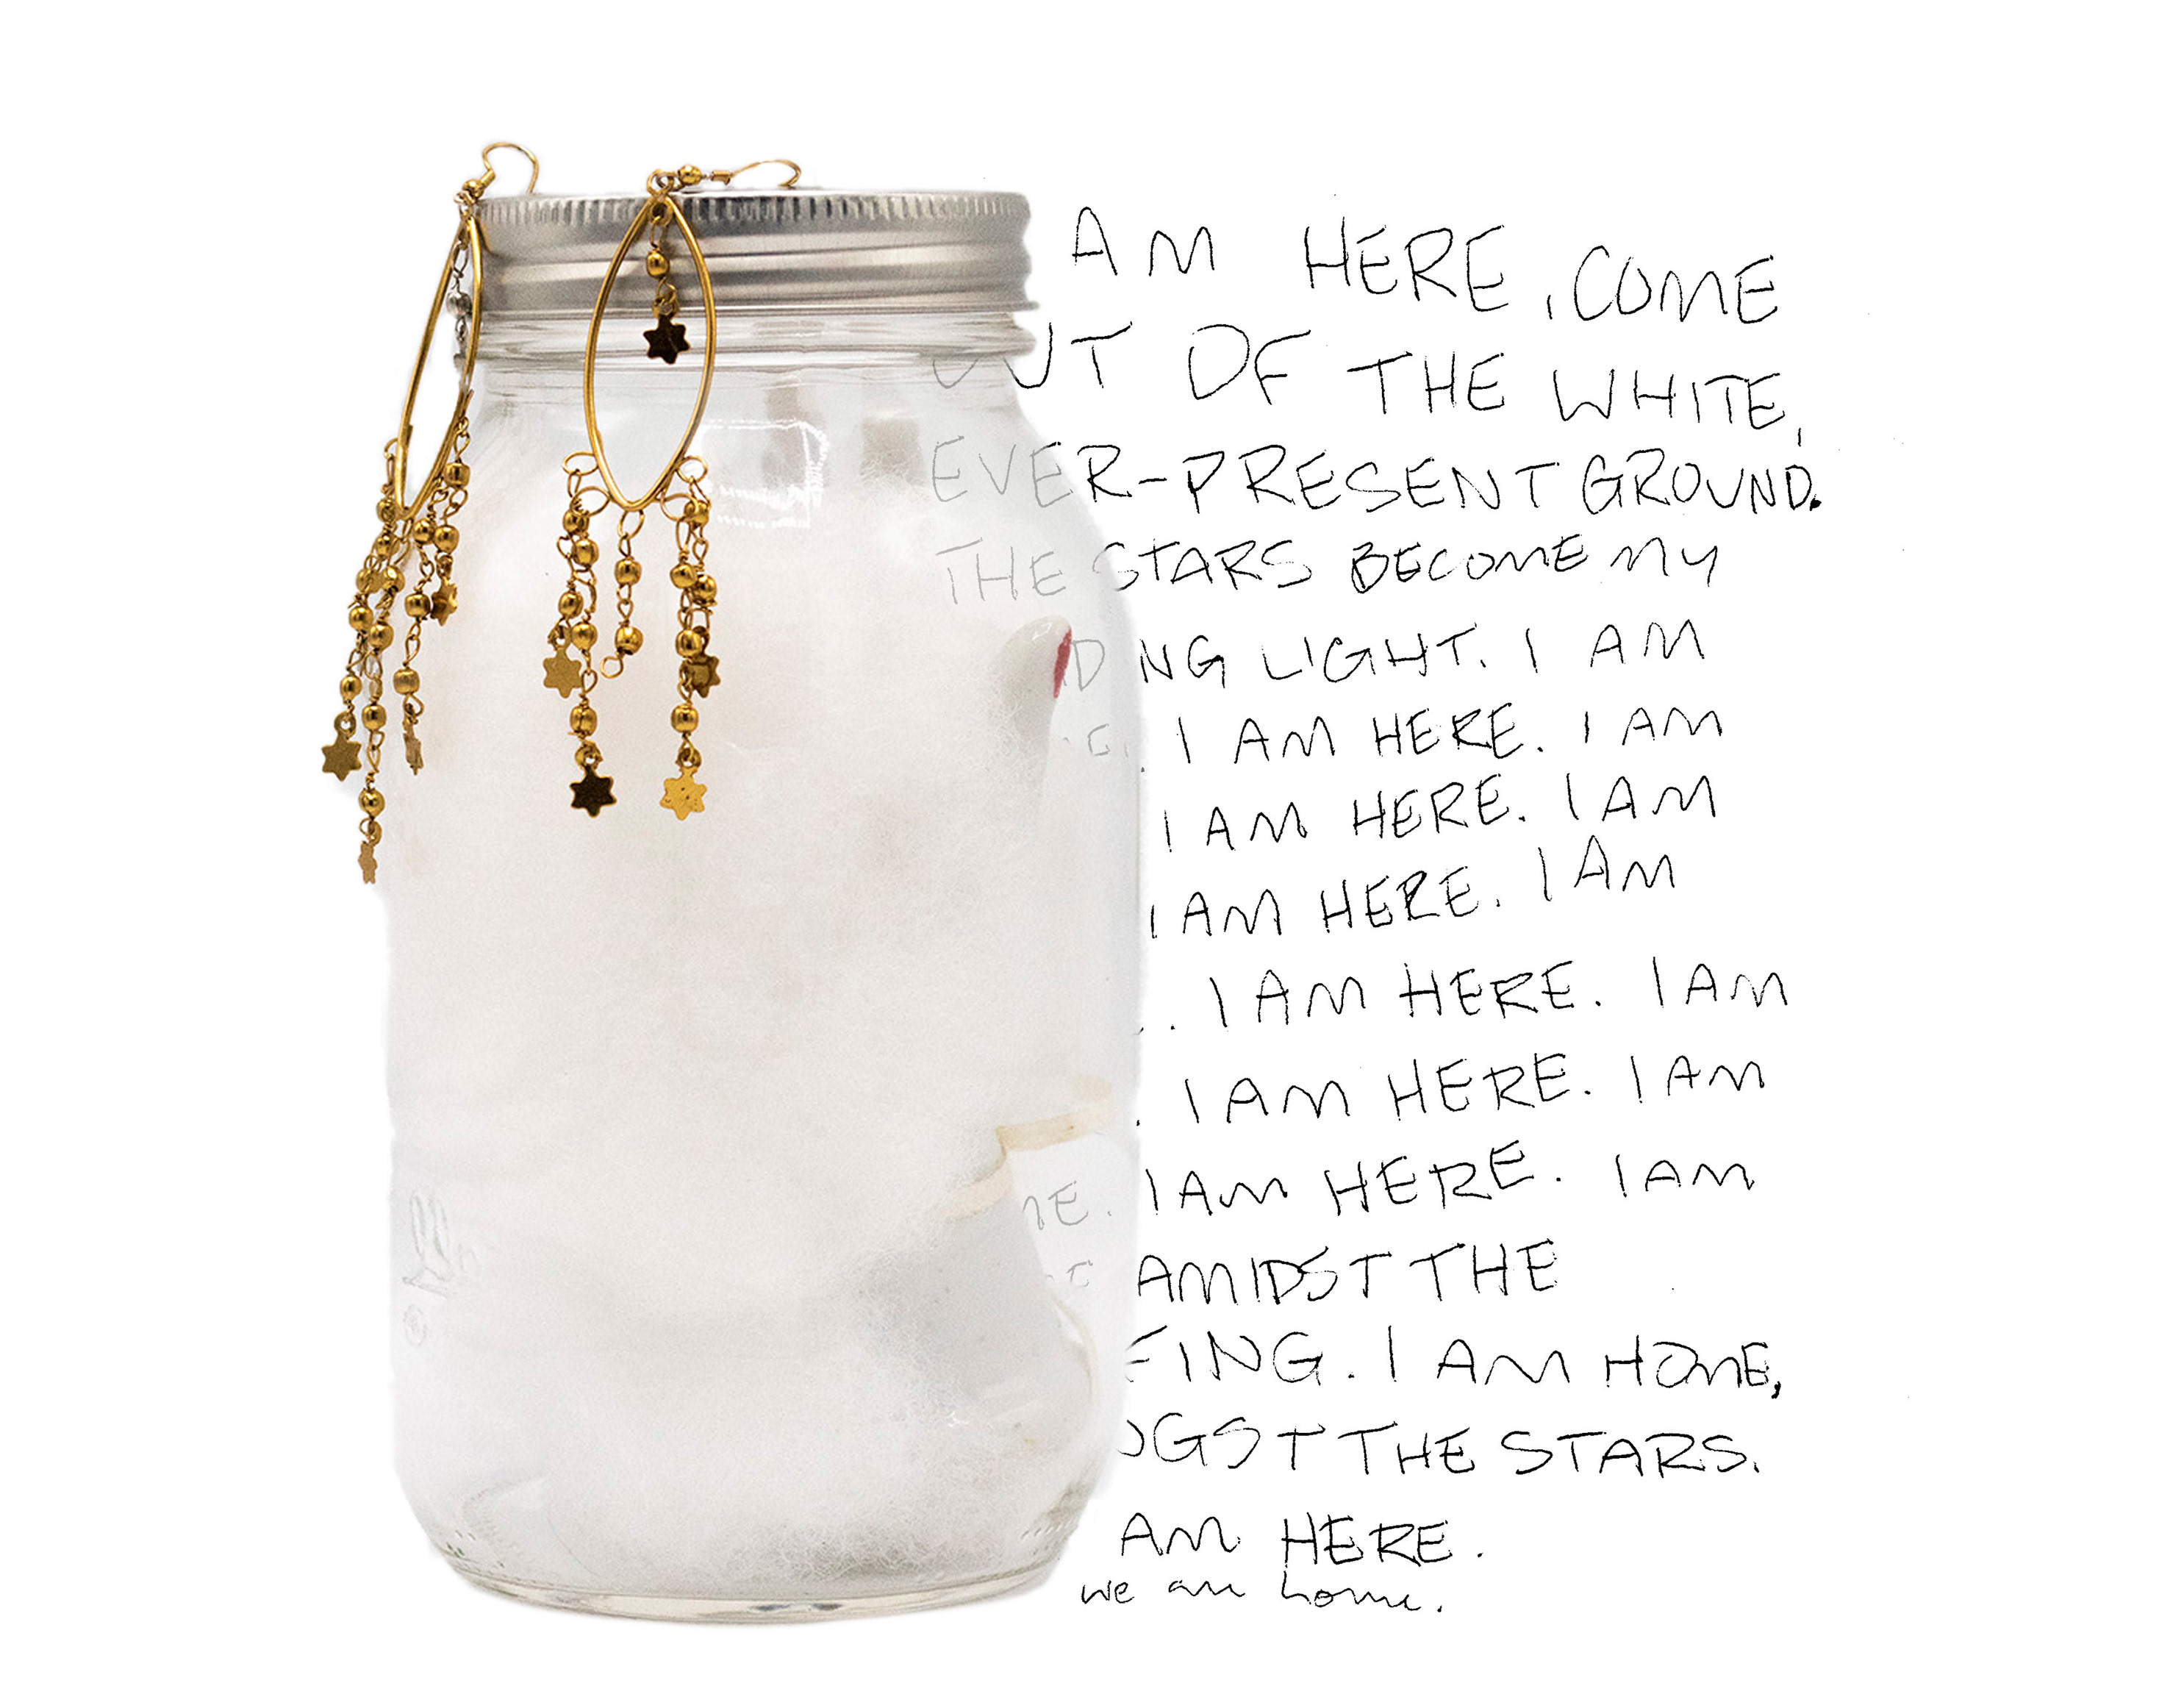 AM HERE, COME
OUT OF THE WHITE,
EVER-PRESENT GROUND.
THE STARS BECOME MY
LIGHT. I AM
I AM HERE. I AM
I AM HERE. I AM
I AM HERE. I AM
. I AM HERE. I AM
. I AM HERE. I AM
I AM HERE. I AM
AMIDST THE
I AM HOME,
THE STARS.
AM HERE.
we are home.